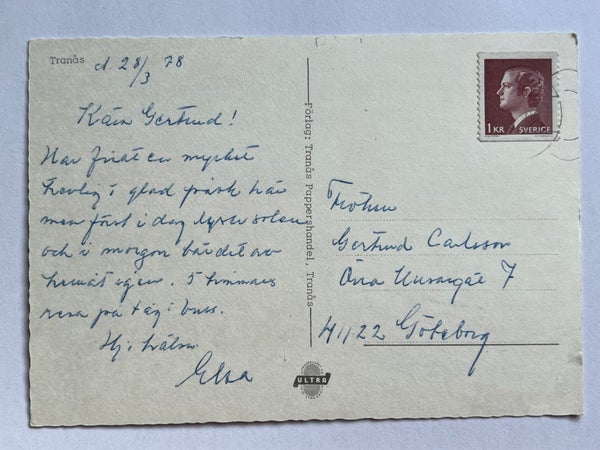 Tranås
d 28/3 78
Kära Gertrud!
Har firat en mycket
trevlig i glad påsk här
men först i dag lyste solen
och i morgon bär det av
hemåt igen. 5 timmars
resa på tåg i buss.
Hj. hälsn.
Elsa
Förlag: Tranås Pappershandel, Tranås
ULTRA
1 KR SVERIGE
Fröken
Gertrud Carlsson
7
411 22 Göteborg